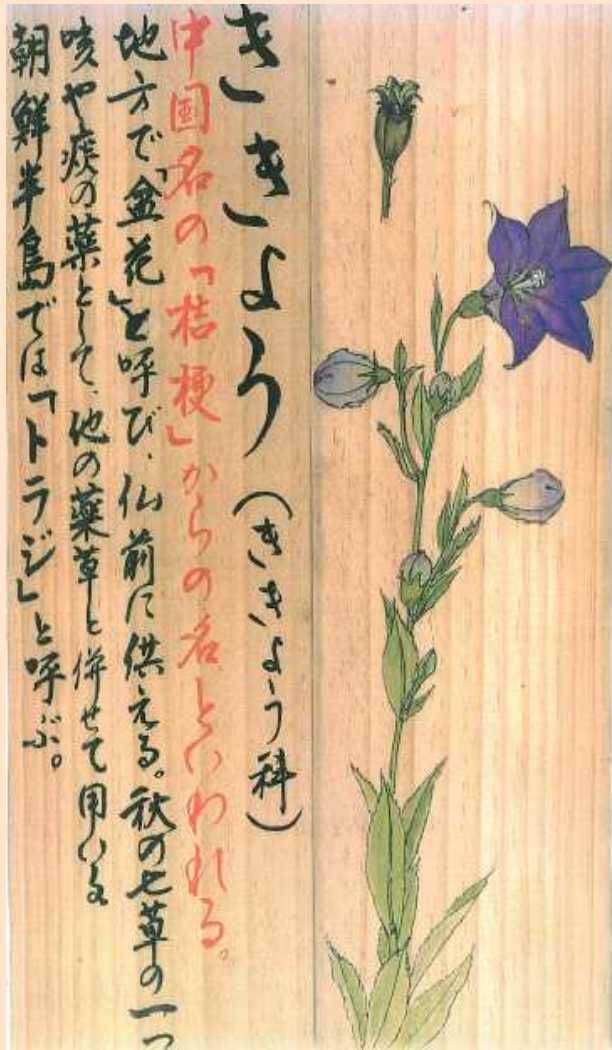 ききょう(ききょう科)
中国名の「桔梗」からの名といわれる。
地方で「盆花」と呼び、仏前に供える。秋の七草の一つ
咳や痰の薬として、他の薬草と併せて用いる
朝鮮半島では「トラジ」と呼ぶ。